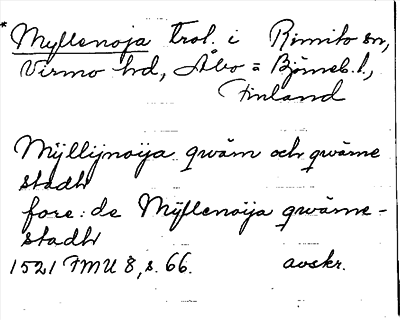 * Myllenoja trol. i Rimito sn,
Virmo hd, Åbo = Björneb. l.,
Finland
Mÿllijnoija qwäm och qwärne
stadh
fore: de Mÿllenoija qwärne-
stadh
1521 FMU 8, s. 66. avskr.